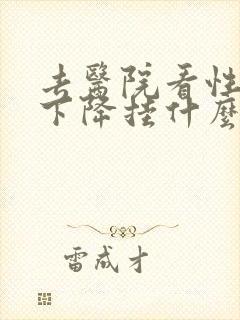 去醫院看性
下降挂什麼
雷成才